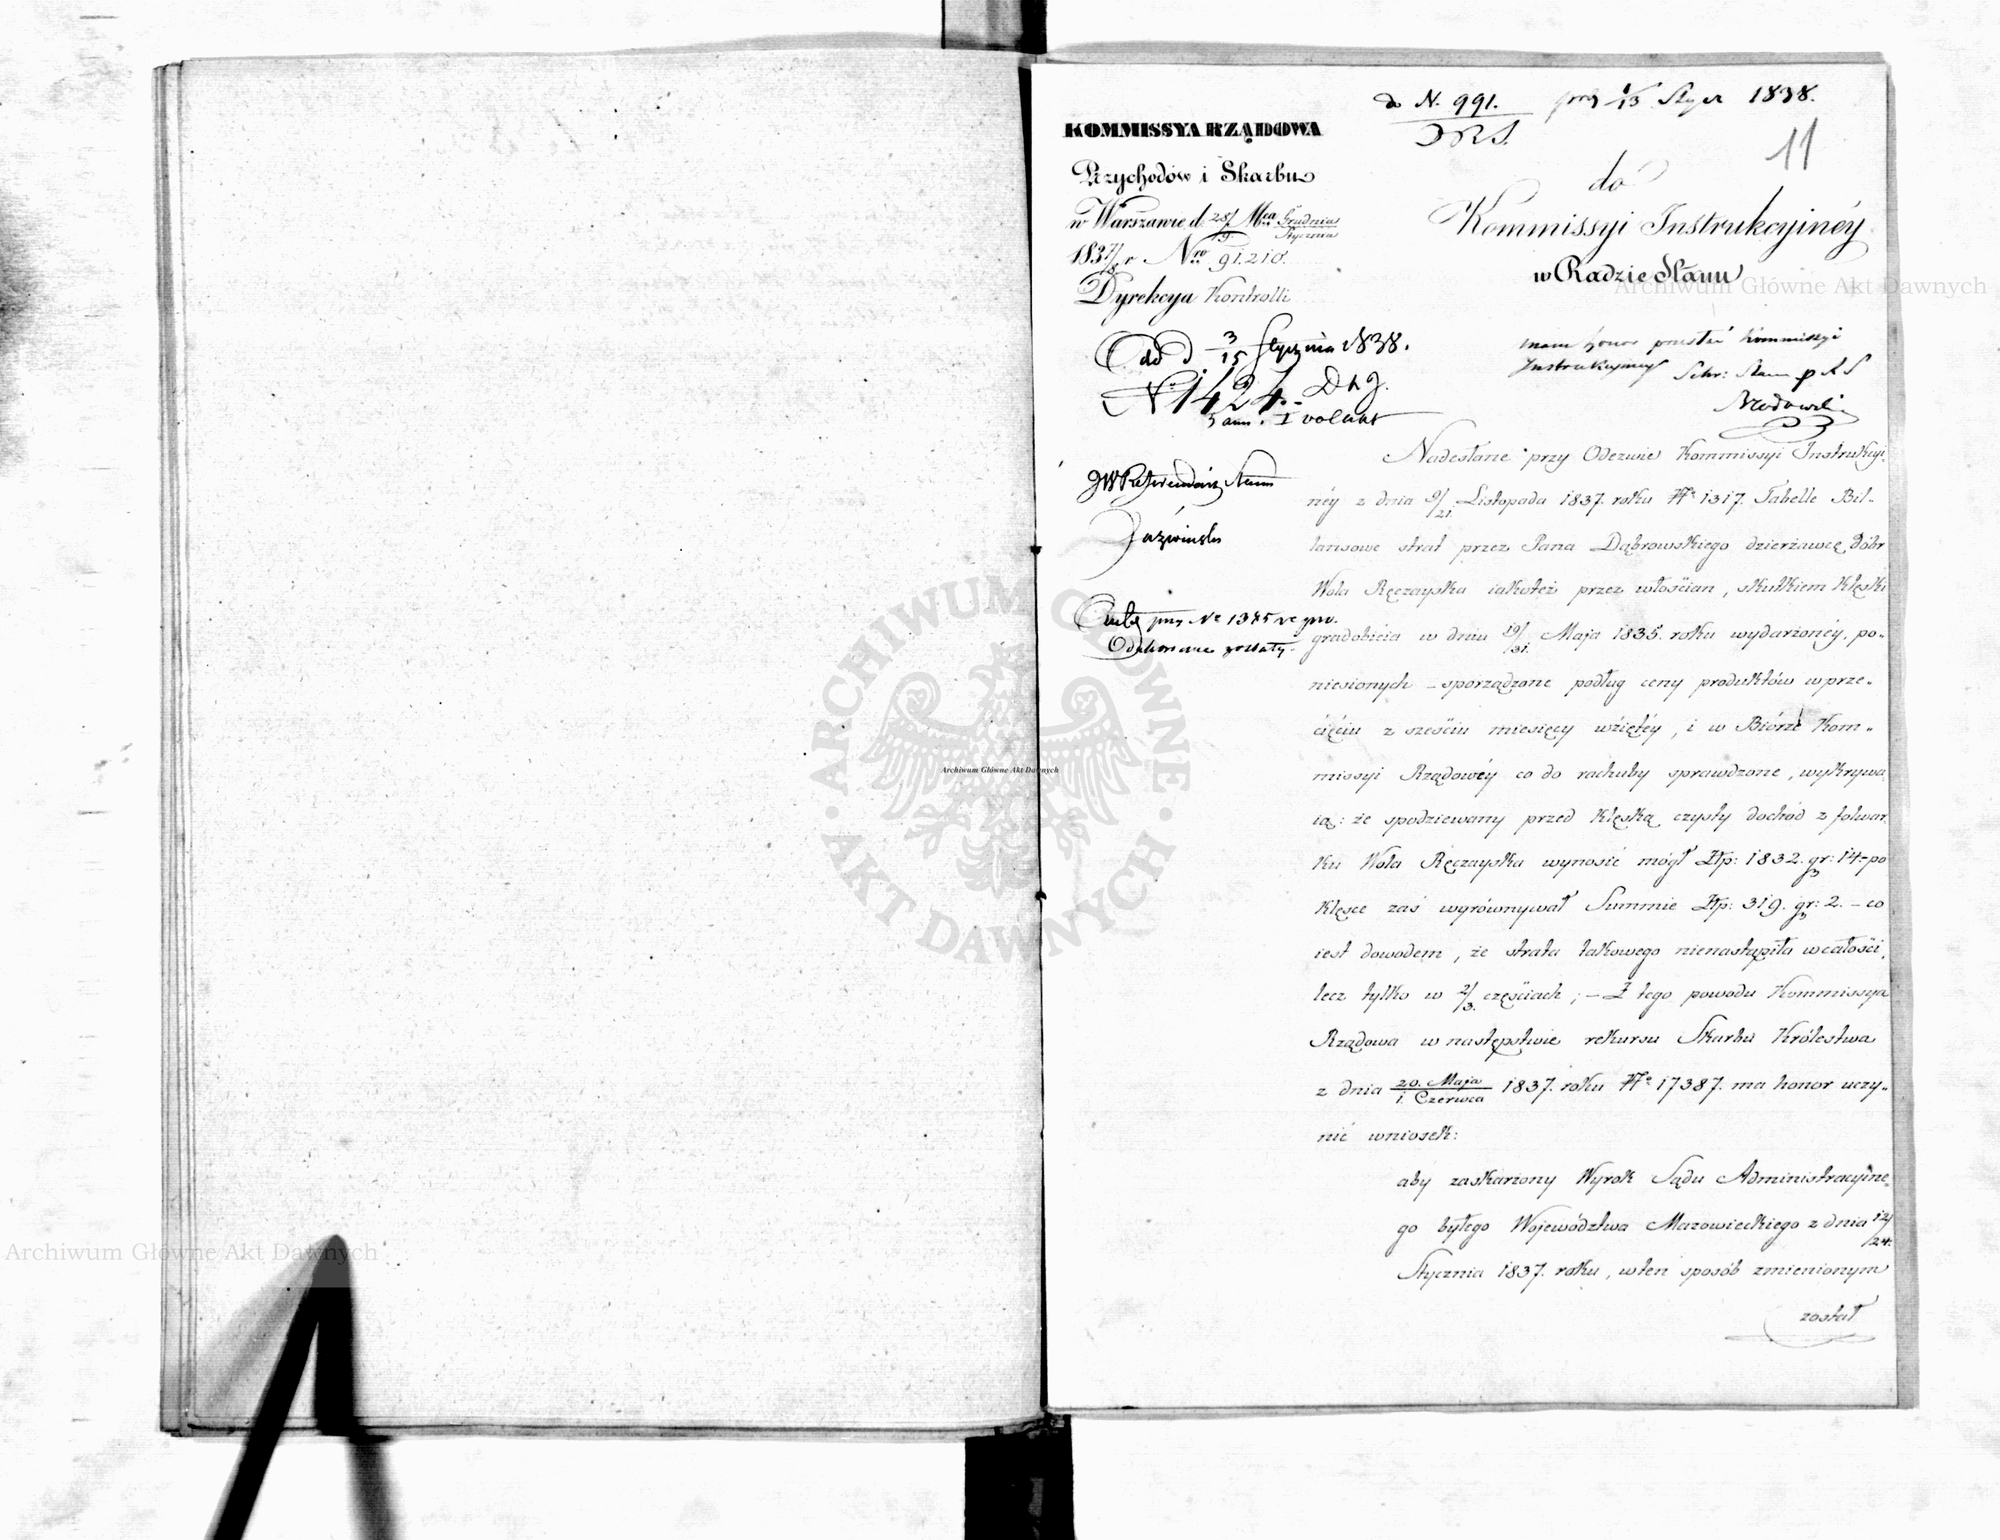 do N. 991. 1/13 1838.
DRS.
11
KOMMISSYA RZĄDOWA
Przychodów i Skarbu
w Warszawie d. 28/9 Mca Grudnia/Stycznia
1837/8 r Nro 91.210.
Dyrekcya Kontrolli
do
Kommissyi Instrukcyinéy
w Radzie Stanu
Odd d 3/15 Stycznia 1838.
No 1424.
mam honor przesłać Kommissyi
Instrukcyiney Sekr: Stanu
JW Referendarz Stanu
Nadesłane przy Odezwie Kommissyi Instrukcyi-
néy z dnia 9/21. Listopada 1837. roku No 1317. Tabelle Bil-
lansowe strat przez Pana Dąbrowskiego dzierżawcę Dóbr
Wola Ręczayska iakoteż przez włościan, skutkiem klęski
gradobicia w dniu 19/31. Maja 1835. roku wydarzonéy, po-
niesionych – sporządzone podług ceny produktów w prze-
cięciu z sześciu miesięcy wziętéy, i w Biórze Kom-
missyi Rządowéy co do rachuby sprawdzone, wykrywa
ią: że spodziewany przed klęską czysty dochód z folwar
ku Wola Ręczayska wynosić mógł Złp: 1832. gr: 14.– po
klęsce zaś wyrównywał Summie Złp: 319. gr: 2. – co
iest dowodem, że strata takowego nienastąpiła w całości,
lecz tylko w 2/3. częściach; – Z tego powodu Kommissya
Rządowa w następstwie rekursu Skarbu Królestwa
z dnia 20. Maja/1. Czerwca 1837. roku No 17387. ma honor uczy-
nić wniosek:
aby zaskarżony Wyrok Sądu Administracyine-
go byłego Województwa Mazowieckiego z dnia 12/24.
Stycznia 1837. roku, w ten sposób zmienionym
został
Archiwum Główne Akt Dawnych
ARCHIWUM GŁÓWNE AKT DAWNYCH
Archiwum Główne Akt Dawnych
Archiwum Główne Akt Dawnych